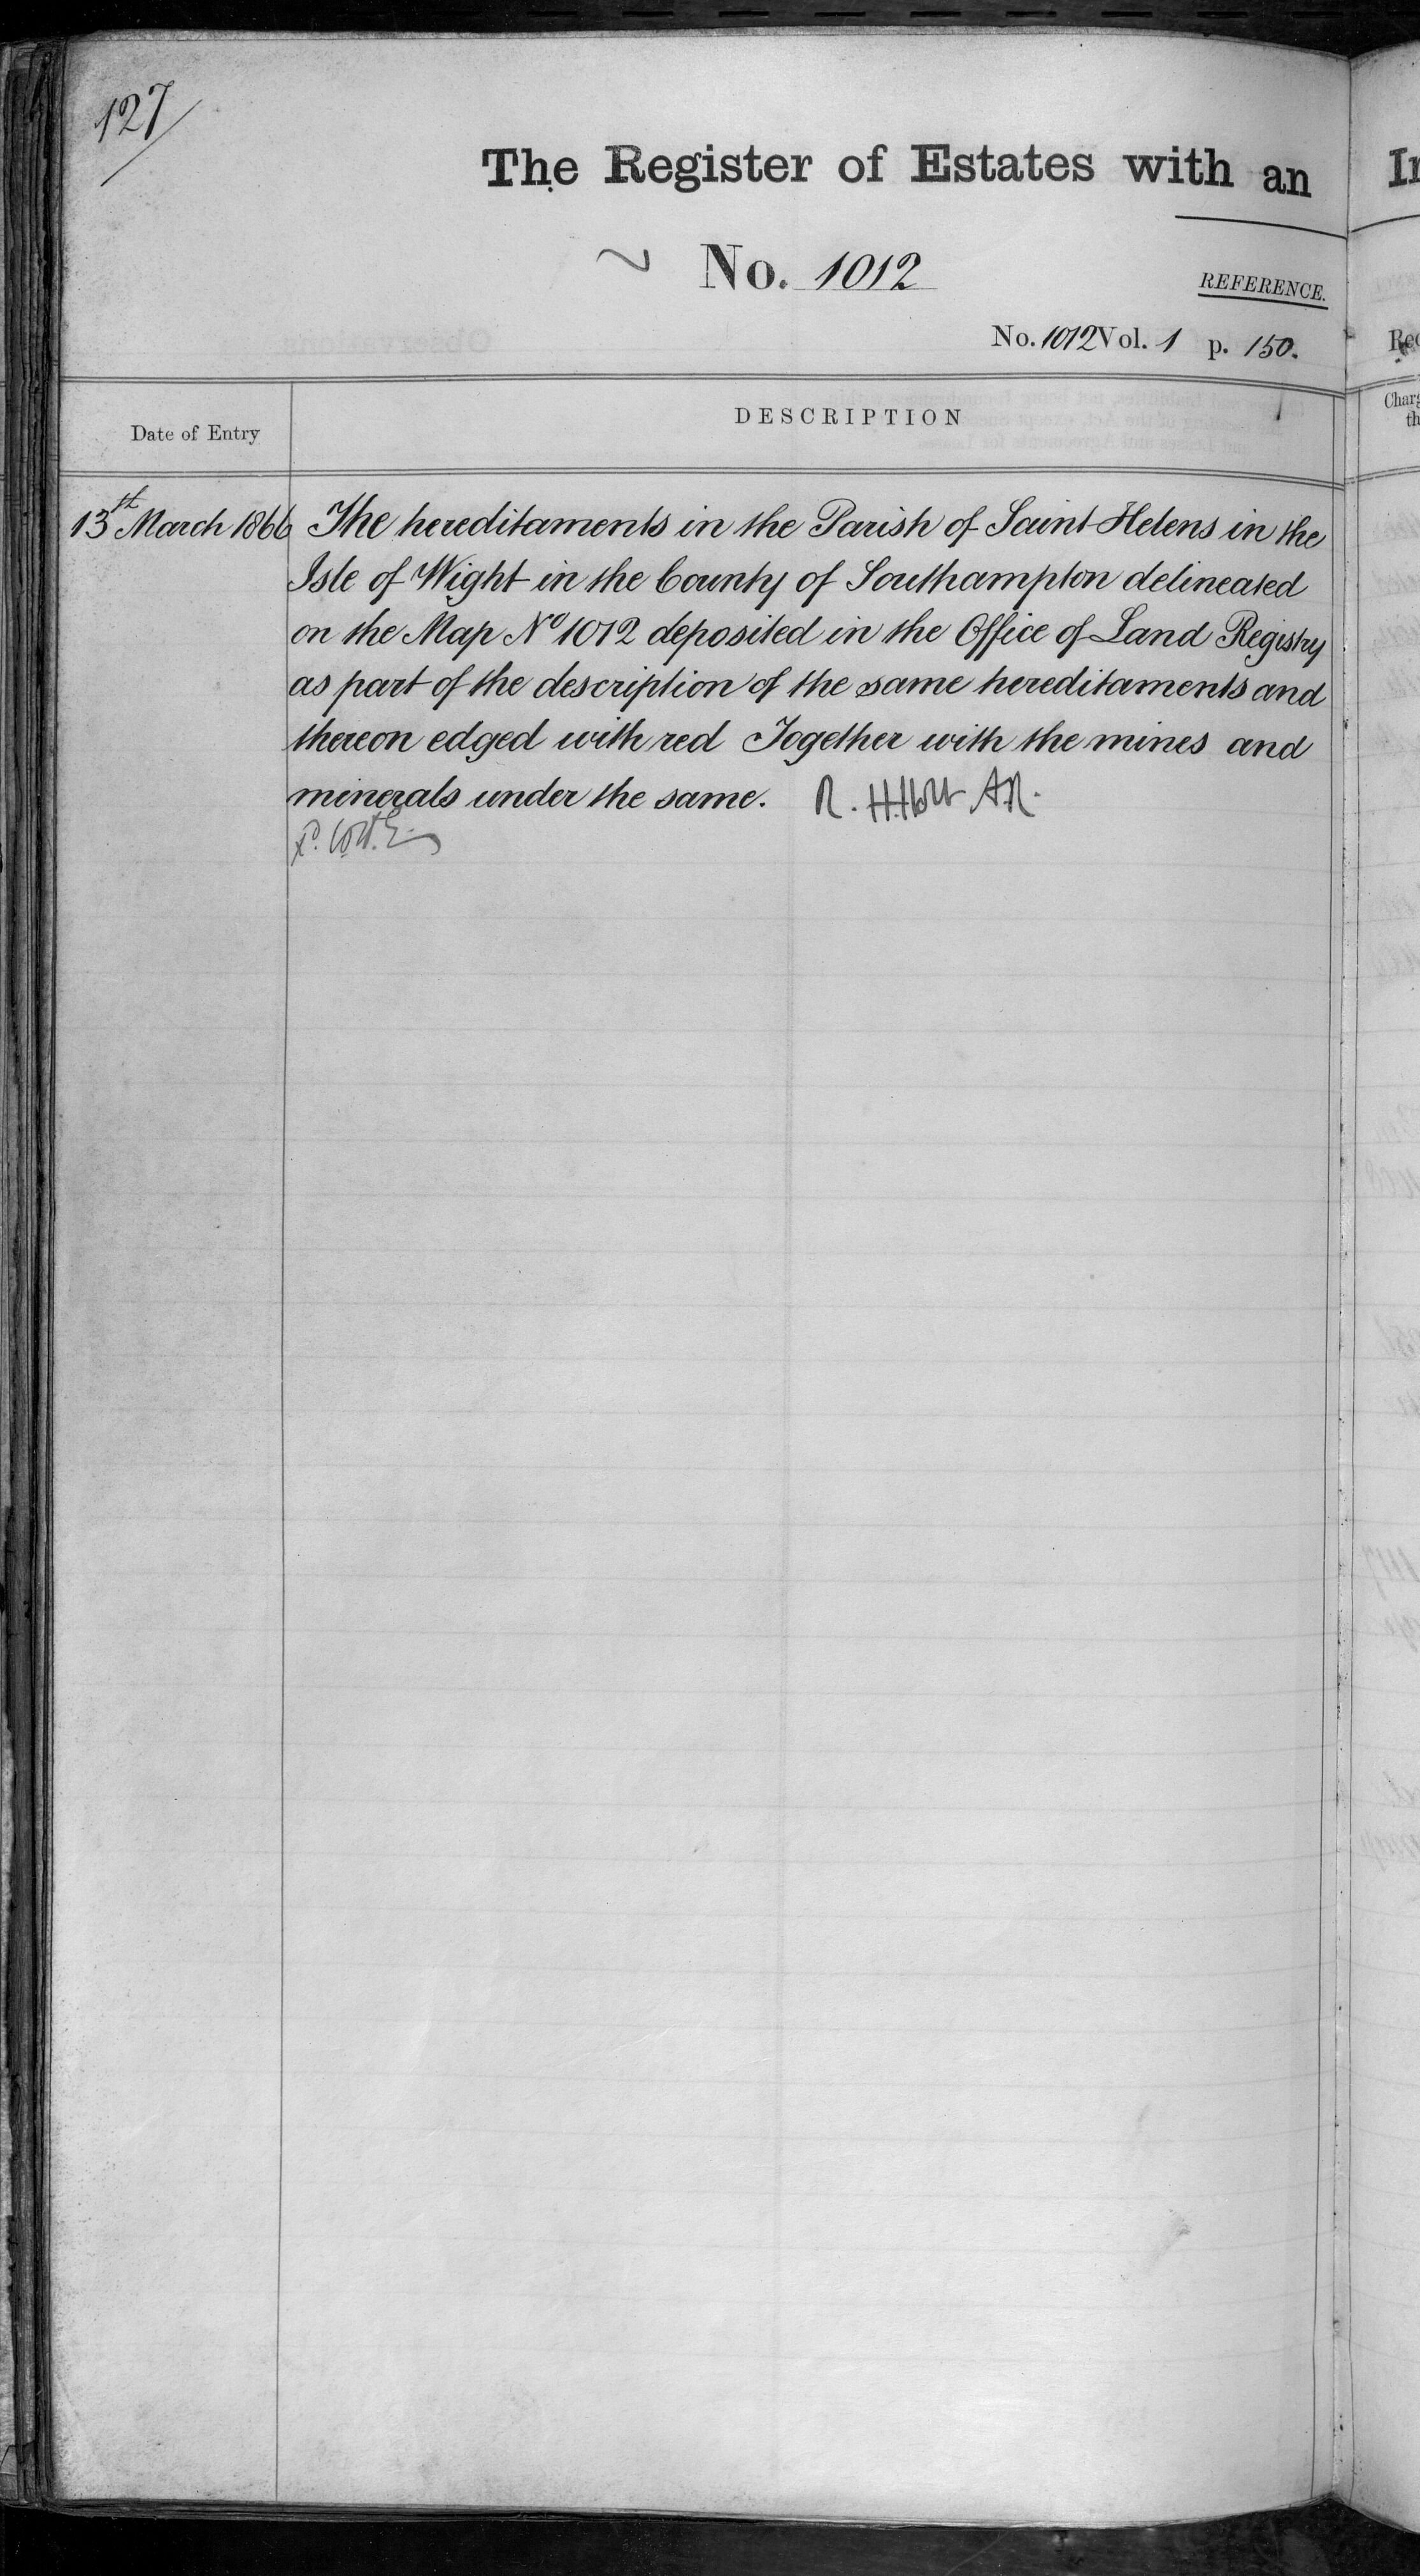 127
The Register of Estates with an
No. 1012
REFERENCE.
No. 1012 Vol. 1 p. 150.
Date of Entry
DESCRIPTION
13th March 1866
The hereditaments in the Parish of Saint Helens in the
Isle of Wight in the County of Southampton delineated
on the Map No 1012 deposited in the Office of Land Registry
as part of the description of the same hereditaments and
thereon edged with red Together with the mines and
minerals under the same. R. H. Holt A.R.